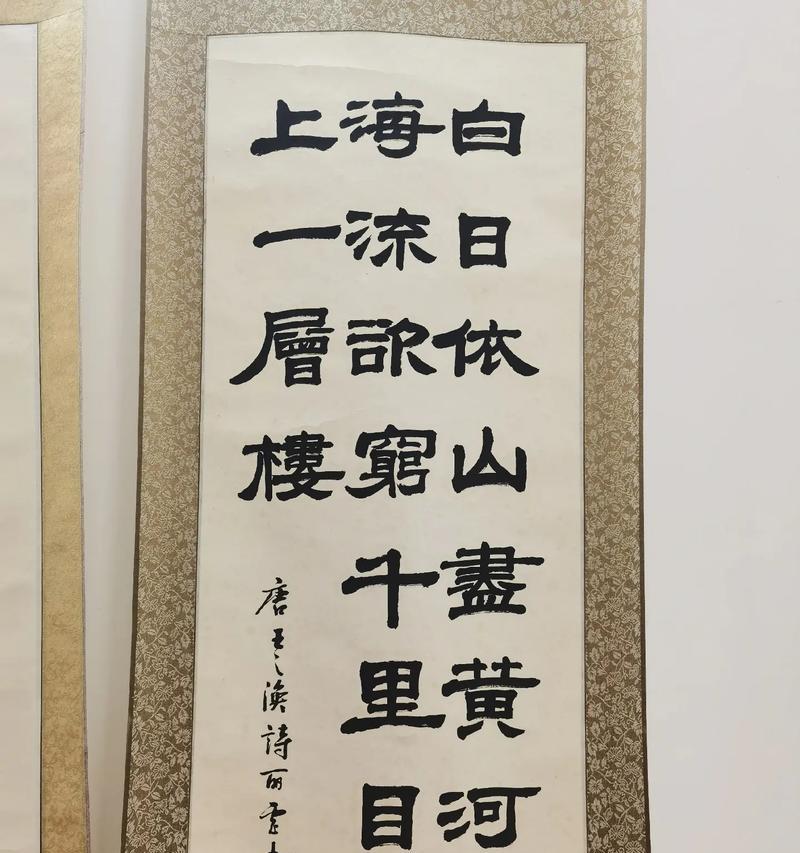 白日依山盡黄河
海流欲窮千里目
上一層樓
唐王之渙詩丽雲